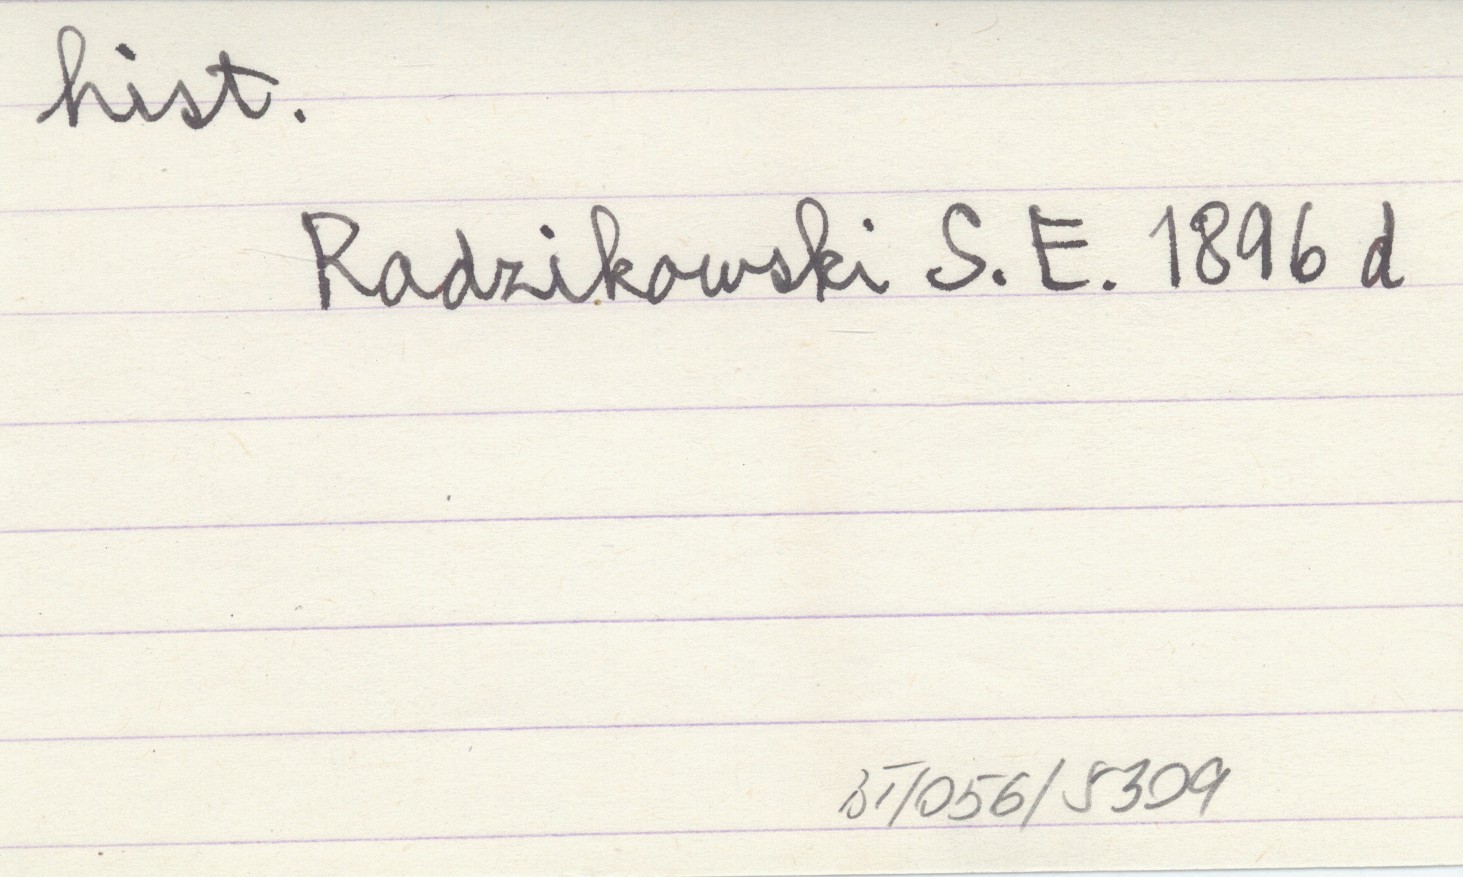 hist.
Radzikowski S. E. 1896 d
BT/056/5309